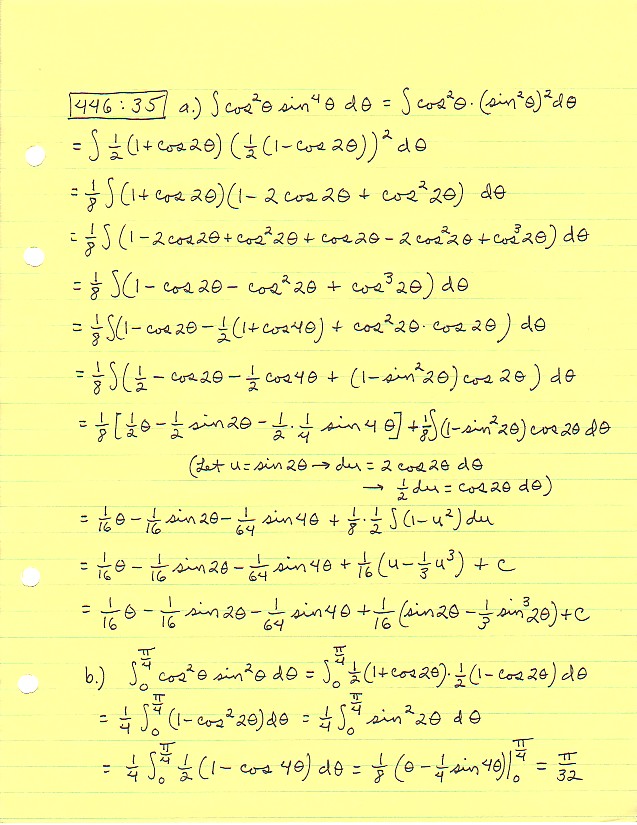 446:35 a.) ∫cos²θ sin⁴θ dθ = ∫cos²θ·(sin²θ)²dθ
= ∫ 1/2(1+cos2θ)(1/2(1-cos2θ))² dθ
= 1/8 ∫(1+cos2θ)(1-2cos2θ + cos²2θ) dθ
= 1/8 ∫(1-2cos2θ+cos²2θ+cos2θ-2cos²2θ+cos³2θ) dθ
= 1/8 ∫(1-cos2θ-cos²2θ + cos³2θ) dθ
= 1/8 ∫(1-cos2θ-1/2(1+cos4θ) + cos²2θ·cos2θ) dθ
= 1/8 ∫(1/2-cos2θ-1/2cos4θ + (1-sin²2θ)cos2θ) dθ
= 1/8 [1/2θ-1/2 sin2θ-1/2·1/4 sin4θ] + 1/8∫(1-sin²2θ)cos2θ dθ
(Let u=sin2θ → du = 2cos2θ dθ
→ 1/2du = cos2θ dθ)
= 1/16θ-1/16sin2θ-1/64 sin4θ + 1/8·1/2 ∫(1-u²)du
= 1/16θ-1/16sin2θ-1/64 sin4θ + 1/16(u-1/3u³) + C
= 1/16θ-1/16 sin2θ-1/64 sin4θ+1/16(sin2θ-1/3sin³2θ)+C
b.) ∫₀^(π/4) cos²θ sin²θ dθ = ∫₀^(π/4) 1/2(1+cos2θ)·1/2(1-cos2θ)dθ
= 1/4 ∫₀^(π/4) (1-cos²2θ)dθ = 1/4 ∫₀^(π/4) sin²2θ dθ
= 1/4 ∫₀^(π/4) 1/2(1-cos4θ)dθ = 1/8 (θ-1/4sin4θ)|₀^(π/4) = π/32